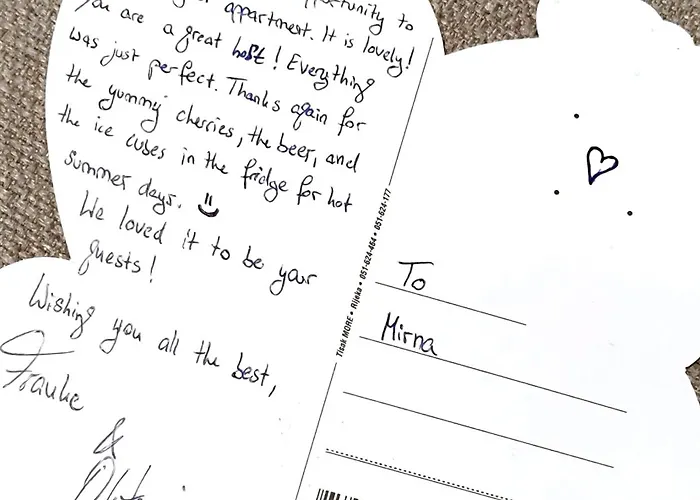 to
appartment. It is lovely!
You are a great host! Everything
was just perfect. Thanks again for
the yummy cherries, the beer, and
the ice cubes in the fridge for hot
summer days.
We loved it to be your
guests!
Wishing you all the best,
Frauke
&
Tisak MORE • Rijeka • 051-624-464 • 051-624-177
To
Mirna